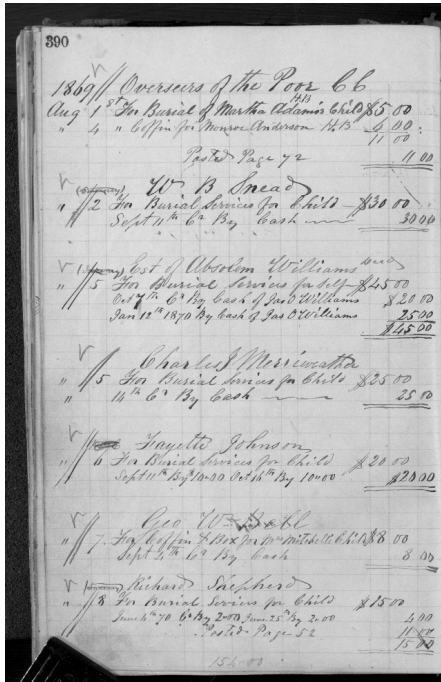 390
1869 Overseers of the Poor CC
Aug 1st For Burial of Martha Adams Child $5 00
" 4 " Coffin for Monroe Anderson 6 00
11 00
Posted Page 72 11 00
W B Snead
" 2 For Burial Services for Child $30 00
Sept 11th Cr By Cash 30 00
Est of Absolem Williams Decd
" 5 For Burial Services for Self $45 00
Oct 7th Cr By Cash of Jas O Williams $20 00
Jan 12th 1870 By Cash of Jas O Williams 25 00
$45 00
Charles J Merriweather
" 5 For Burial Services for Child $25 00
" 14th Cr By Cash 25 00
Fayette Johnson
" 6 For Burial Services for Child $20 00
Sept 11th By 10-00 Oct 16th By 10-00 $20 00
Geo W Bell
" 7 For Coffin & Box for Wm Mitchell Child $8 00
Sept 4th Cr By Cash 8 00
Richard Shepherd
" 8 For Burial Services for Child $15 00
June 4th 70 Cr By 2-00 June 25th By 2-00 4 00
Posted Page 52 11 00
15 00
154-00